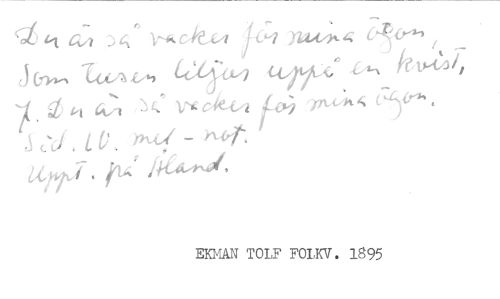 Du är så vacker för mina ögon,
Som tusen liljor uppå en kvist,
7. Du är så vacker för mina ögon.
Sid. 10. mel - not.
Uppt. på Åland.
EKMAN TOLF FOLKV. 1895